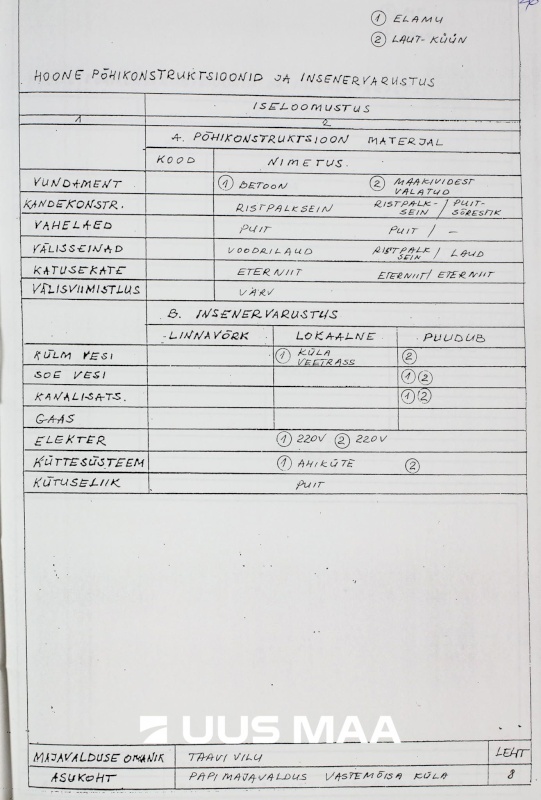 ① ELAMU
② LAUT-KÜÜN
HOONE PÕHIKONSTRUKTSIOONID JA INSENERVARUSTUS
ISELOOMUSTUS
1 2
A. PÕHIKONSTRUKTSIOON MATERJAL
KOOD NIMETUS.
VUNDAMENT ① BETOON ② MAAKIVIDEST VALATUD
KANDEKONSTR. RISTPALKSEIN RISTPALK-SEIN / PUIT-SÕRESTIK
VAHELAED PUIT PUIT / –
VÄLISSEINAD VOODRILAUD RISTPALKSEIN / LAUD
KATUSEKATE ETERNIIT ETERNIIT / ETERNIIT
VÄLISVIIMISTLUS VÄRV
B. INSENERVARUSTUS
LINNAVÕRK LOKAALNE PUUDUB
KÜLM VESI ① KÜLA VEETRASS ②
SOE VESI ① ②
KANALISATS. ① ②
GAAS
ELEKTER ① 220V ② 220V
KÜTTESÜSTEEM ① AHIKÜTE ②
KÜTUSELIIK PUIT
UUS MAA
MAJAVALDUSE OMANIK TAAVI VILU LEHT
ASUKOHT PAPI MAJAVALDUS VASTEMÕISA KÜLA 8